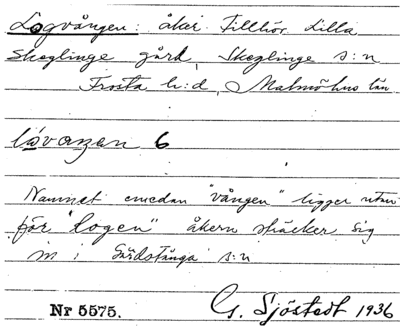 Logvången: åker. Tillhör Lilla
Skeglinge gård, Skeglinge s:n
Frosta h:d, Malmöhus län
lóvaŋen 6
Namnet emedan "vången" ligger utan-
för "logen" åkern sträcker sig
in i Gårdstånga s:n
Nr 5575. G. Sjöstedt 1936